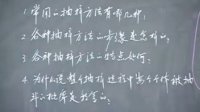 1. 常用的抽样方法有哪几种;
2. 各种抽样方法的步骤是怎样的;
3. 各种抽样方法的特点如何;
4. 为什么说每个抽样过程中每个个体被抽
到的概率是相等的;